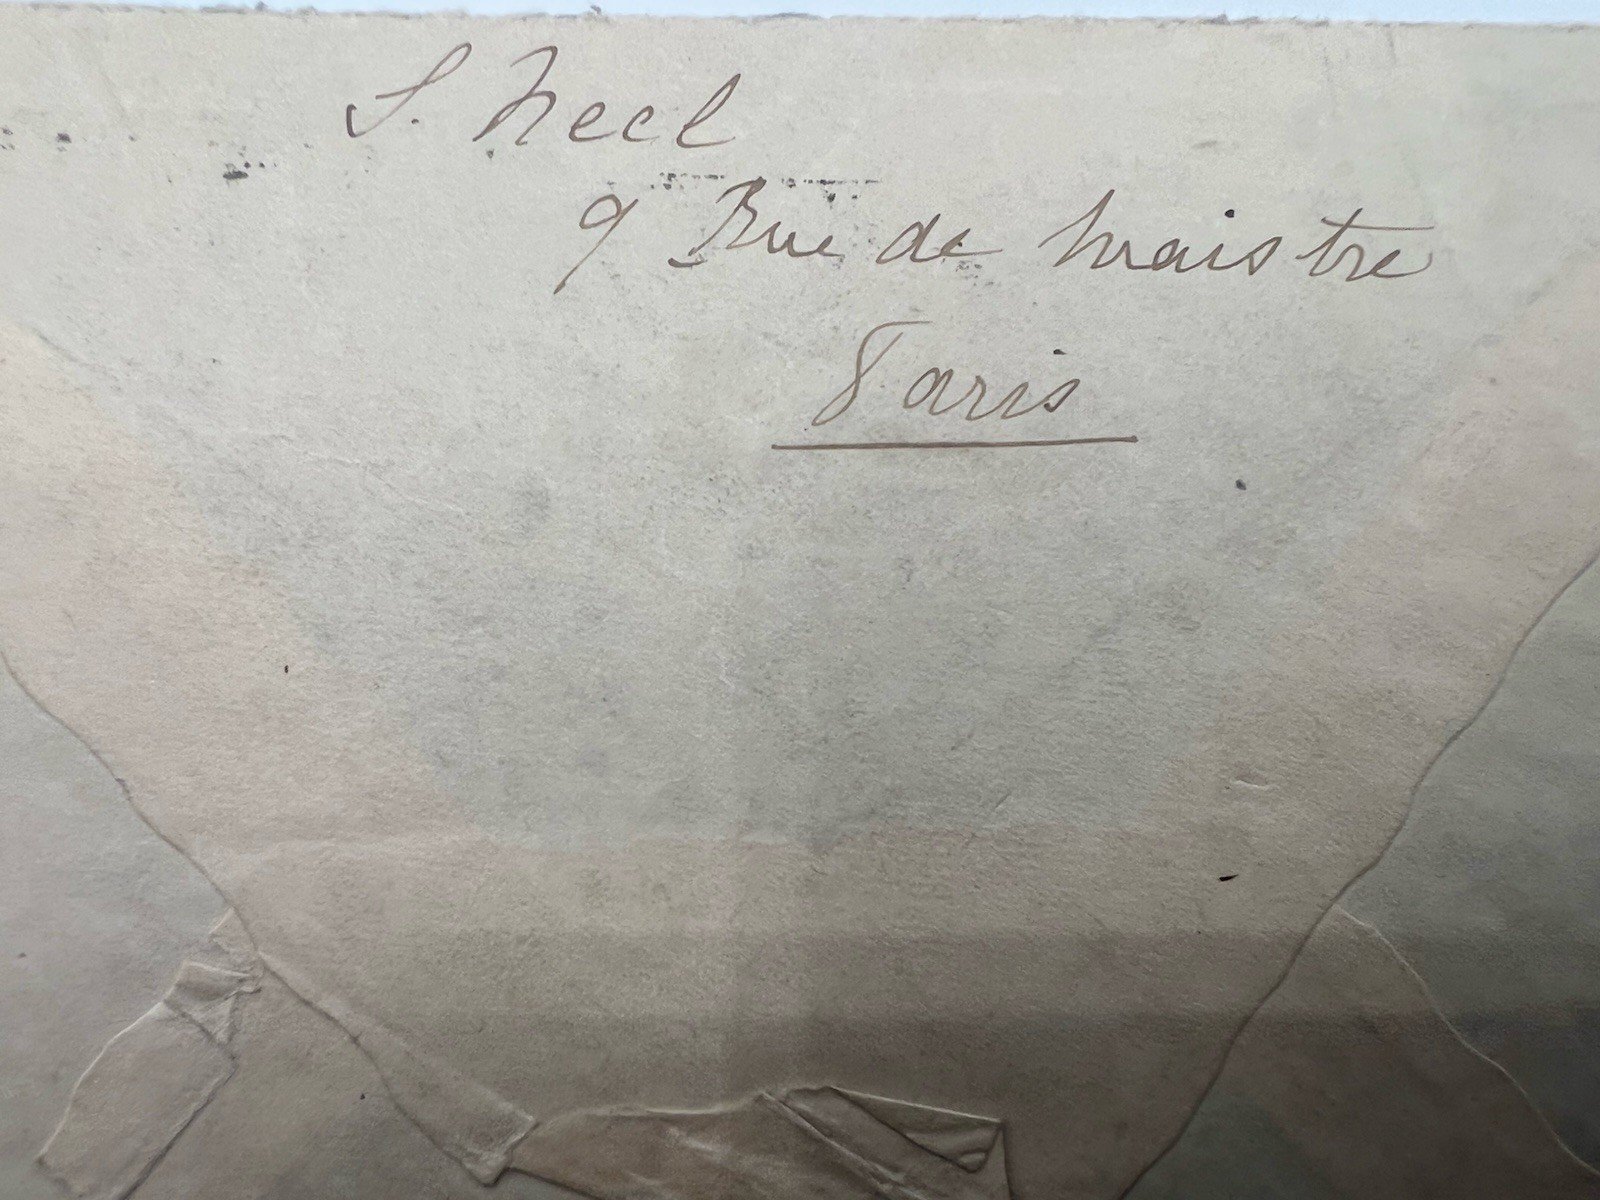 S. Neel
9 Rue de Maistre
Paris